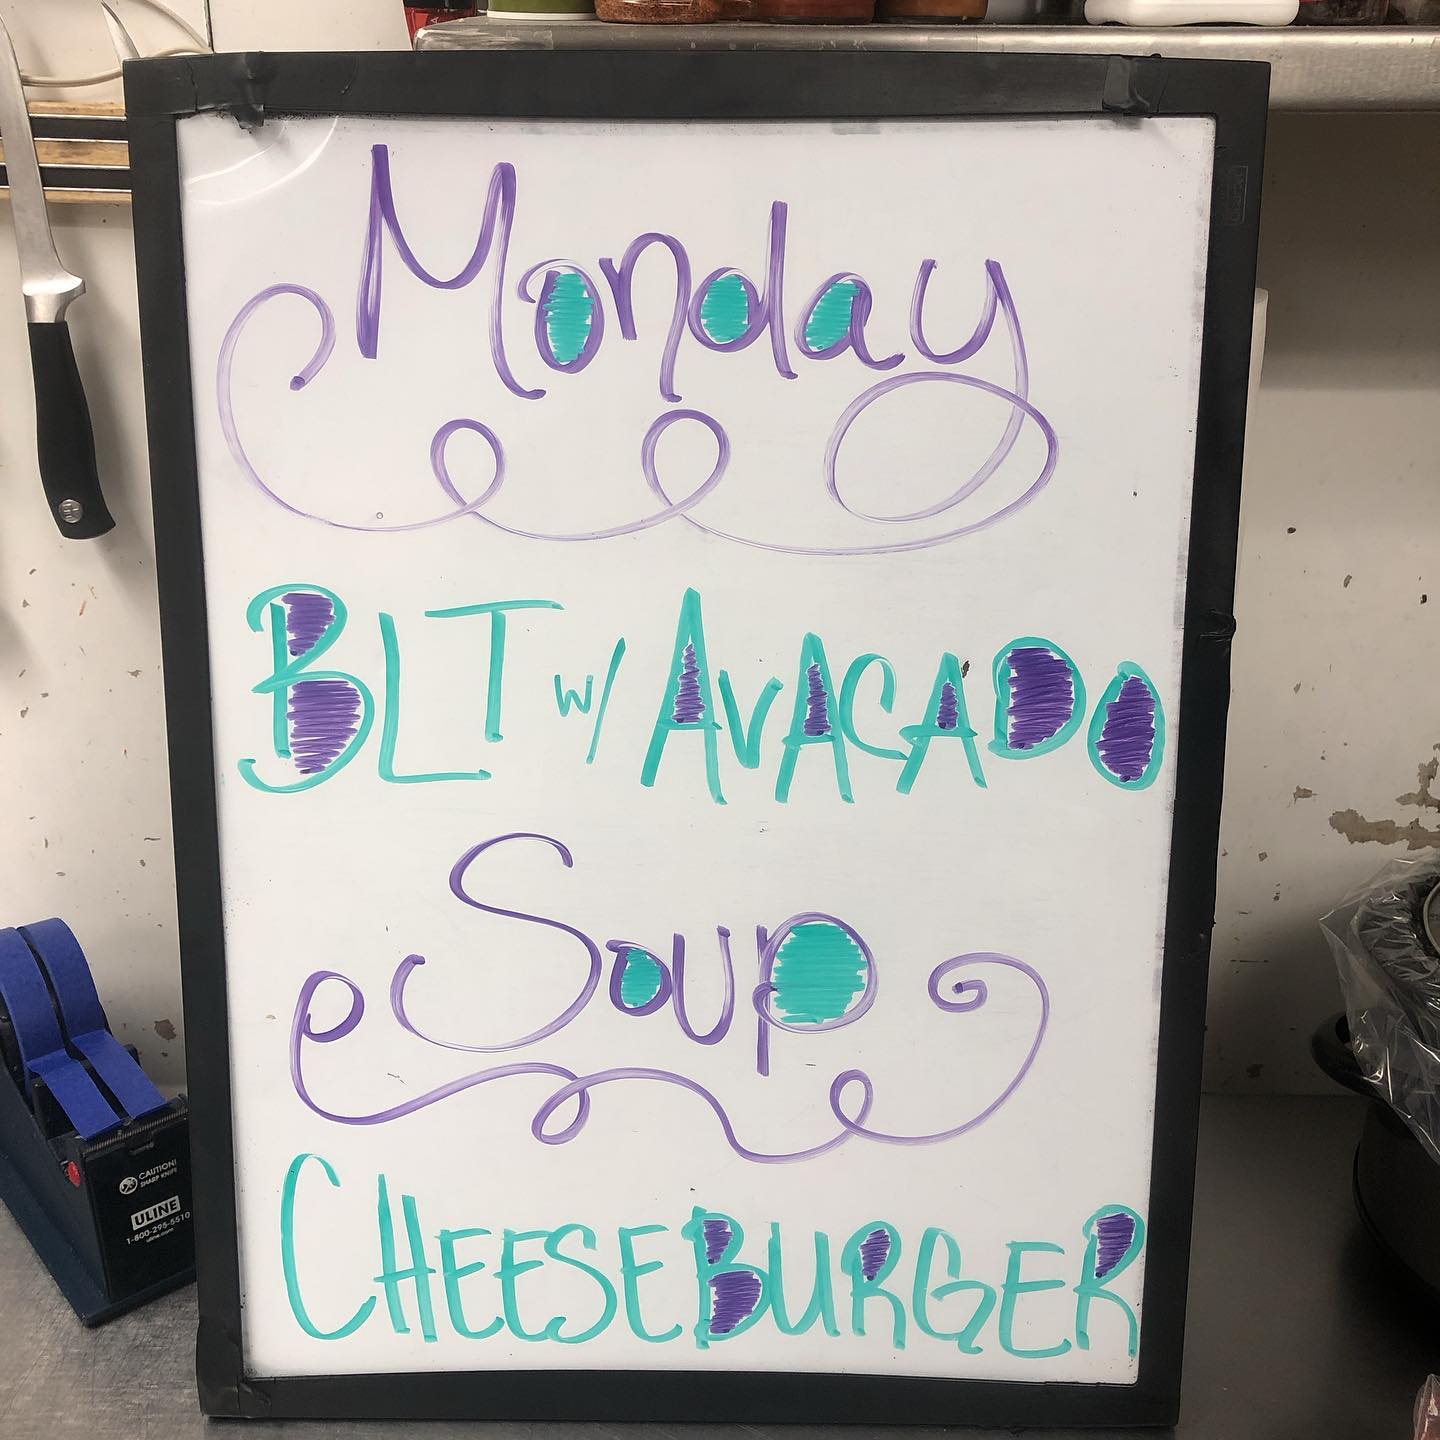 Monday
BLT w/ AVACADO
Soup
CHEESEBURGER
CAUTION!
SHARP KNIFE
ULINE
1-800-295-5510
uline.com